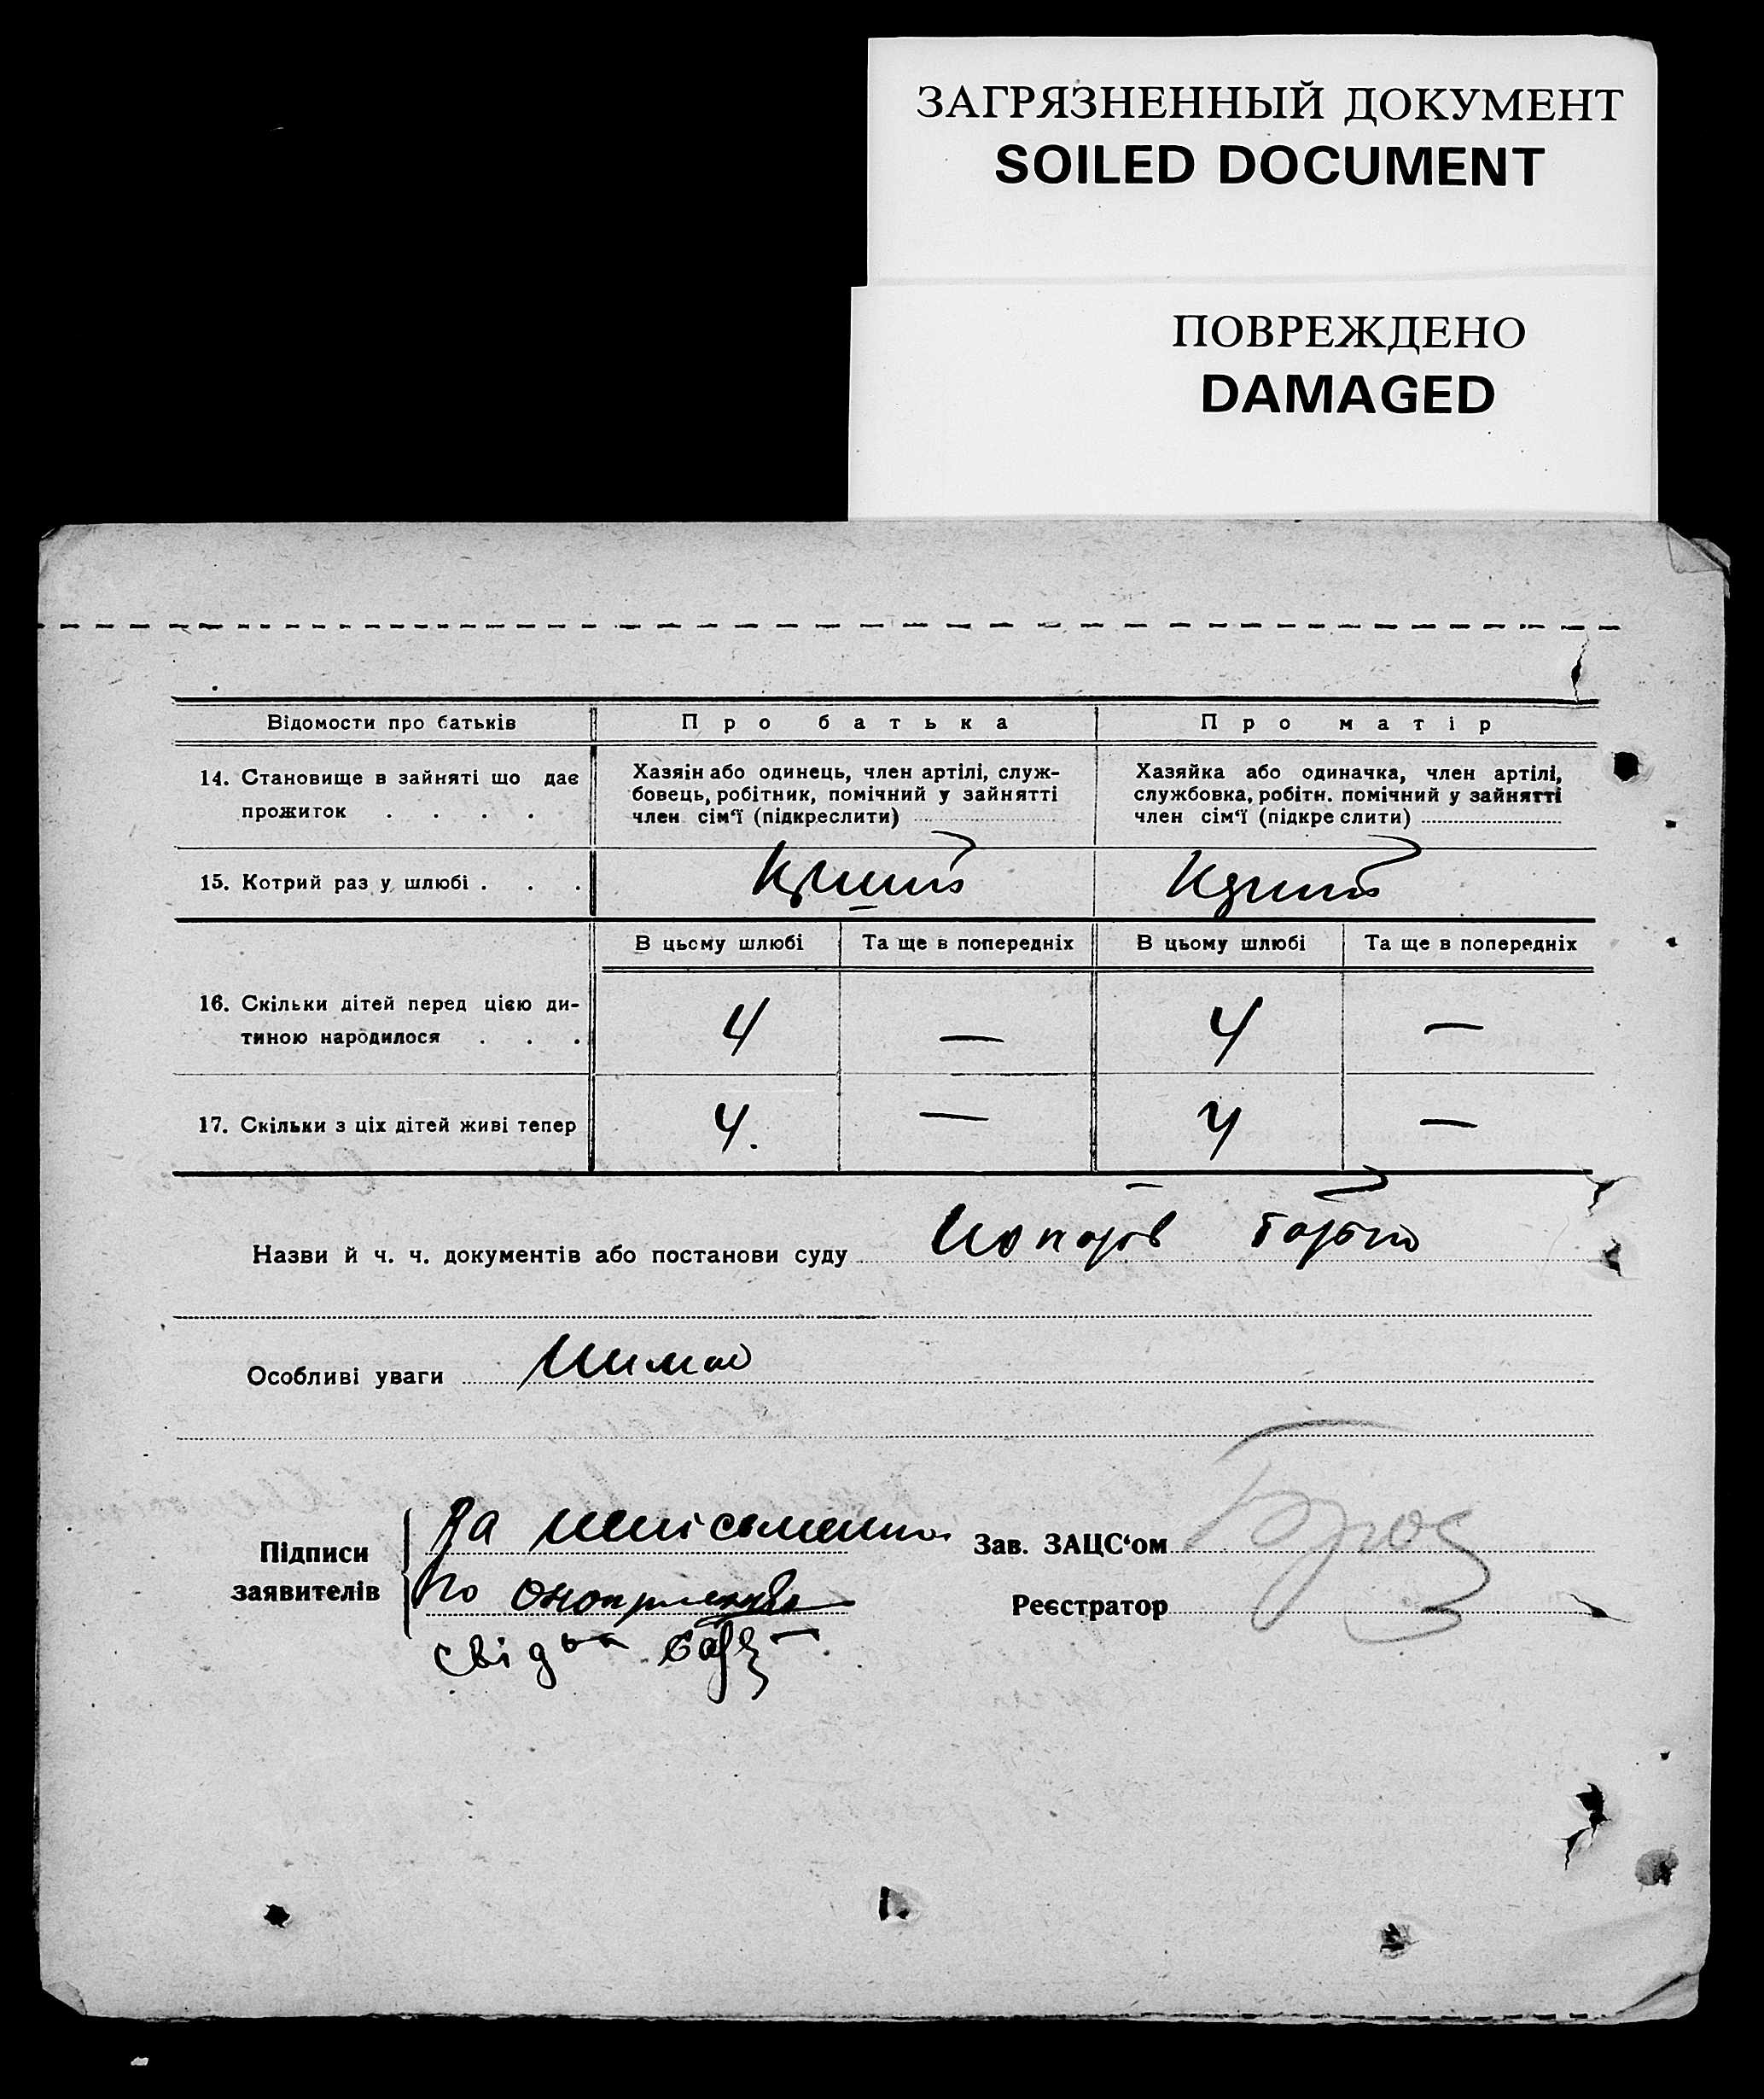 ЗАГРЯЗНЕННЫЙ ДОКУМЕНТ
SOILED DOCUMENT
ПОВРЕЖДЕНО
DAMAGED
Відомости про батьків
Про батька
Про матір
14. Становище в зайняті що дає
прожиток . . . .
Хазяїн або одинець, член артілі, служ-
бовець, робітник, помічний у зайнятті
член сім‘ї (підкреслити)
Хазяйка або одиначка, член артілі,
службовка, робітн. помічний у зайнятті
член сім‘ї (підкреслити)
15. Котрий раз у шлюбі . . .
В цьому шлюбі
Та ще в попередніх
В цьому шлюбі
Та ще в попередніх
16. Скільки дітей перед цією ди-
тиною народилося . . .
4 — 4 —
17. Скільки з ціх дітей живі тепер
4. — 4 —
Назви й ч. ч. документів або постанови суду
Особливі уваги
Підписи
заявителів
За
по
свідок
Зав. ЗАЦС‘ом
Реєстратор